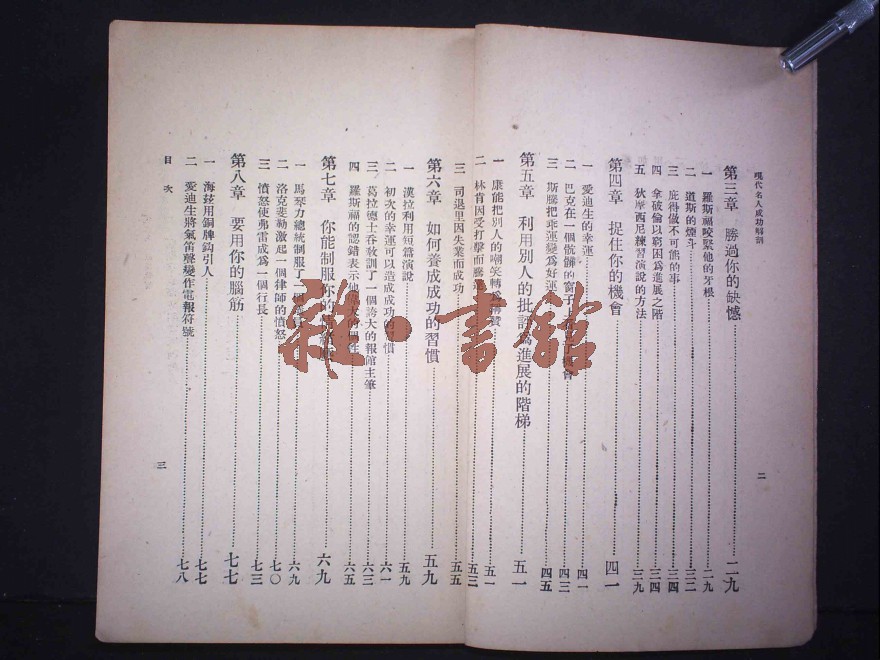 現代名人成功解剖
第三章 勝過你的缺憾 二九
一 羅斯福咬緊他的牙根 二九
二 道斯的煙斗 三三
三 庇得做不可能的事 三四
四 拿破倫以窮困爲進展之階 三四
五 狄摩西尼練習演說的方法 三九
第四章 捉住你的機會 四一
一 愛迪生的幸運 四一
二 巴克在一個骯髒的窗子上 會 四三
三 斯騰把乖運變爲好運 四五
第五章 利用別人的批評爲進展的階梯 五一
一 康能把別人的嘲笑轉爲 讚 五一
二 林肯因受打擊而騰達 五三
三 司退里因失業而成功 五五
二
第六章 如何養成成功的習慣 五九
一 漢拉利用短篇演說 五九
二 初次的幸運可以造成成功的習慣 六一
三 葛拉德士吞教訓了一個誇大的報館主筆 六三
四 羅斯福的認錯表示他 大的個性 六五
第七章 你能制服你的 六九
一 馬琴力總統制服了一個 六九
二 洛克斐勒激起一個律師的憤怒 七〇
三 憤怒使弗雷成爲一個行長 七三
第八章 要用你的腦筋 七七
一 海茲用銅牌鈎引人 七七
二 愛迪生將氣笛聲變作電報符號 七八
目次
三
雜·書館